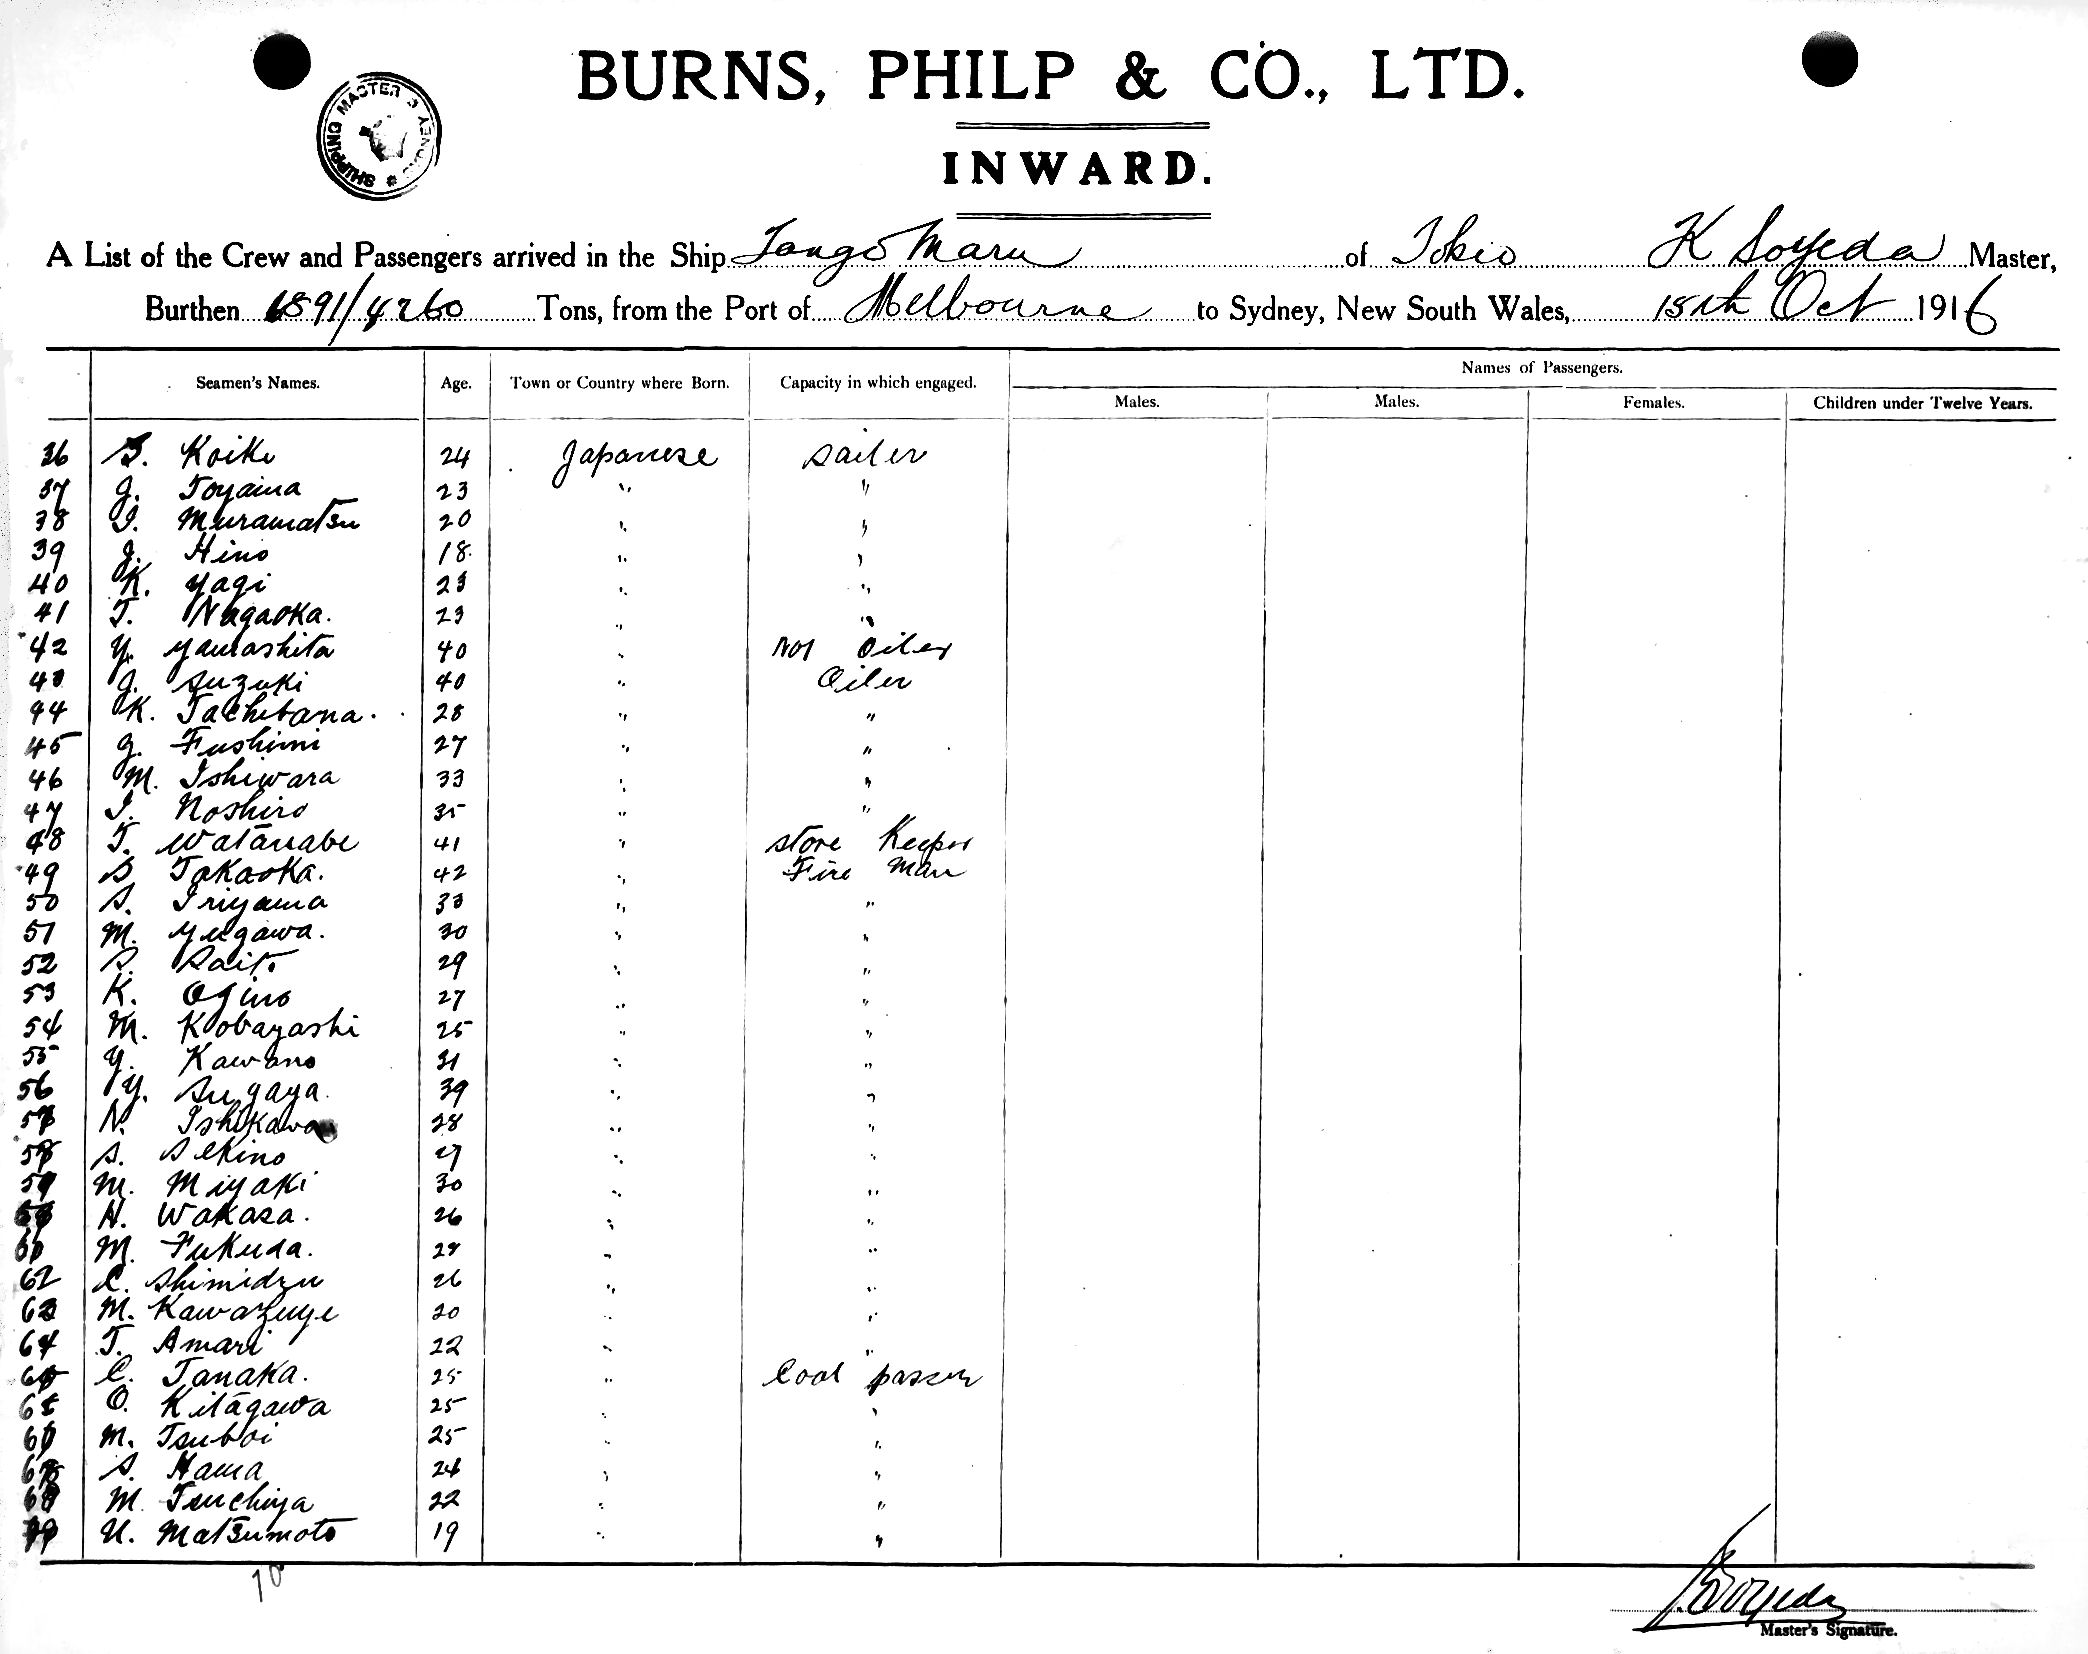 BURNS, PHILP & CO., LTD.
SHIPPING MASTER SYDNEY
INWARD.
A List of the Crew and Passengers arrived in the Ship Tango Maru of Tokio K Soyeda Master,
Burthen 6891/4260 Tons, from the Port of Melbourne to Sydney, New South Wales, 15th Oct 1916
Seamen's Names. Age. Town or Country where Born. Capacity in which engaged. Names of Passengers.
Males. Males. Females. Children under Twelve Years.
36 S. Koike 24 Japanese sailer
37 J. Toyama 23 " "
38 I. Muramatsu 20 " "
39 J. Hino 18 " "
40 K. Yagi 23 " "
41 T. Nagaoka. 23 " "
42 Y. Yamashita 40 " No1 Oiler
43 J. Suzuki 40 " Oiler
44 K. Tachibana. 28 " "
45 G. Fushimi 27 " "
46 M. Ishiwara 33 " "
47 I. Noshiro 35 " "
48 T. Watanabe 41 " store Keeper
49 S Takaoka. 42 " Fire man
50 S. Iriyama 33 " "
51 M. Yugawa. 30 " "
52 S. Saito 29 " "
53 K. Ogino 27 " "
54 M. Kobayashi 25 " "
55 Y. Kawano 31 " "
56 Y. Sugaya. 39 " "
57 N. Ishikawa 28 " "
58 S. Sekino 27 " "
59 M. Miyaki 30 " "
H. Wakasa. 26 " "
M. Fukuda. 28 " "
62 C. Shimidzu 26 " "
63 M. Kawazuye 20 " "
64 T. Amari 22 " "
65 C. Tanaka. 25 " Coal passer
66 O. Kitagawa 25 " "
67 M. Tsuboi 25 " "
68 S. Hama 24 " "
69 M. Tsuchiya 22 " "
U. Matsumoto 19 " "
70
K Soyeda
Master's Signature.